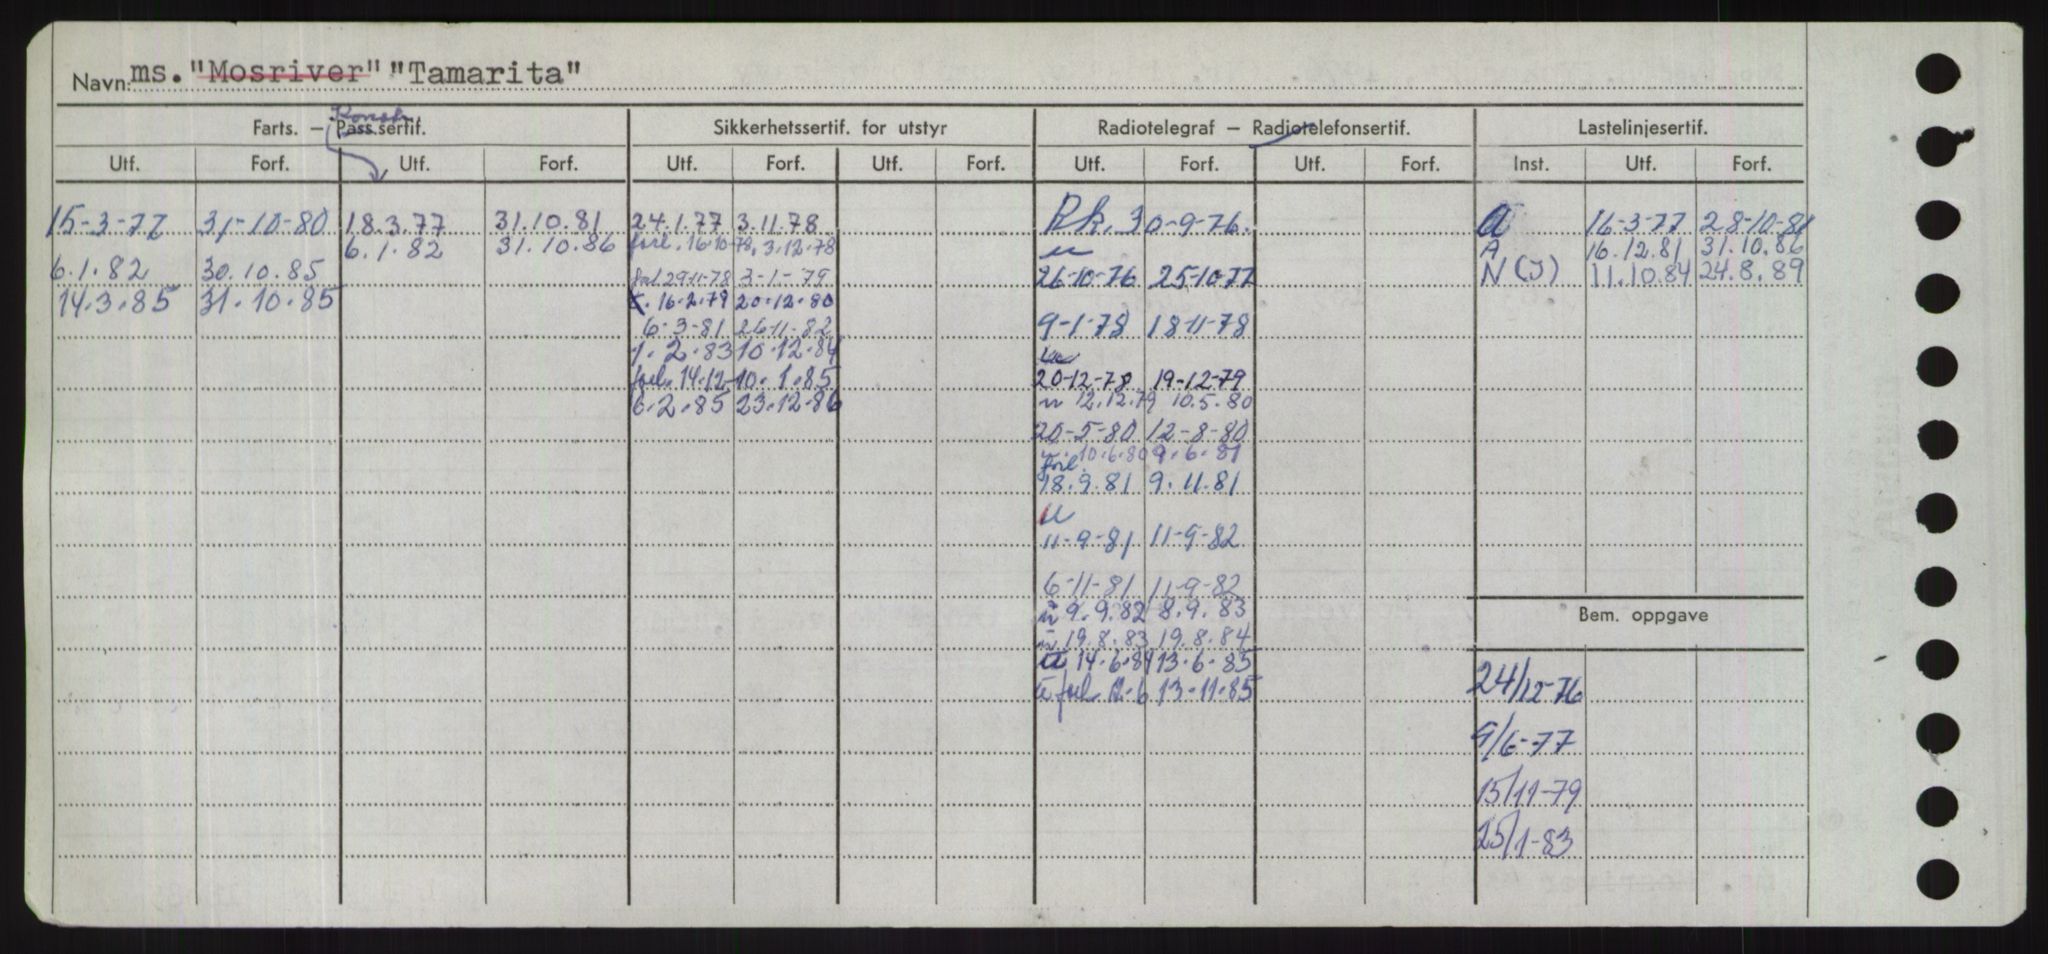 Navn: ms. "Mosriver" "Tamarita"
Konstr.
Farts. – Pass.sertif. Sikkerhetssertif. for utstyr Radiotelegraf – Radiotelefonsertif. Lastelinjesertif.
Utf. Forf. Utf. Forf. Utf. Forf. Utf. Forf. Utf. Forf. Utf. Forf. Inst. Utf. Forf.
15-3-77 31-10-80 18.3.77 31.10.81 24.1.77 3.11.78 Rk. 30-9-76. A 16-3-77 28-10-81
6.1.82 31.10.86 forl. 16-10-78, 3.12.78 u A 16.12.81 31.10.86
6.1.82 30.10.85 forl 29-11-78 3-1-79 26-10-76 25-10-77 N(J) 11.10.84 24.8.89
14.3.85 31.10.85 16.2.79 20.12.80
6-3-81 26-11-82 9-1-78 18-11-78
1.2.83 10.12.84 u
forl. 14.12 10.1.85 20-12-78 19-12-79
6.2.85 23.12.86 u 12.12.79 10.5.80
20-5-80 12-8-80
u 10.6.80 9.6.81
forl.
18.9.81 9.11.81
u
11-9-81 11-9-82
6-11-81 11-9-82
u 9.9.82 8.9.83 Bem. oppgave
u 19.8.83 19.8.84
u 14.6.84 13.6.85
u forl. 12.6 13.11.85 24/12-76
9/6-77
15/11-79
25/1-83